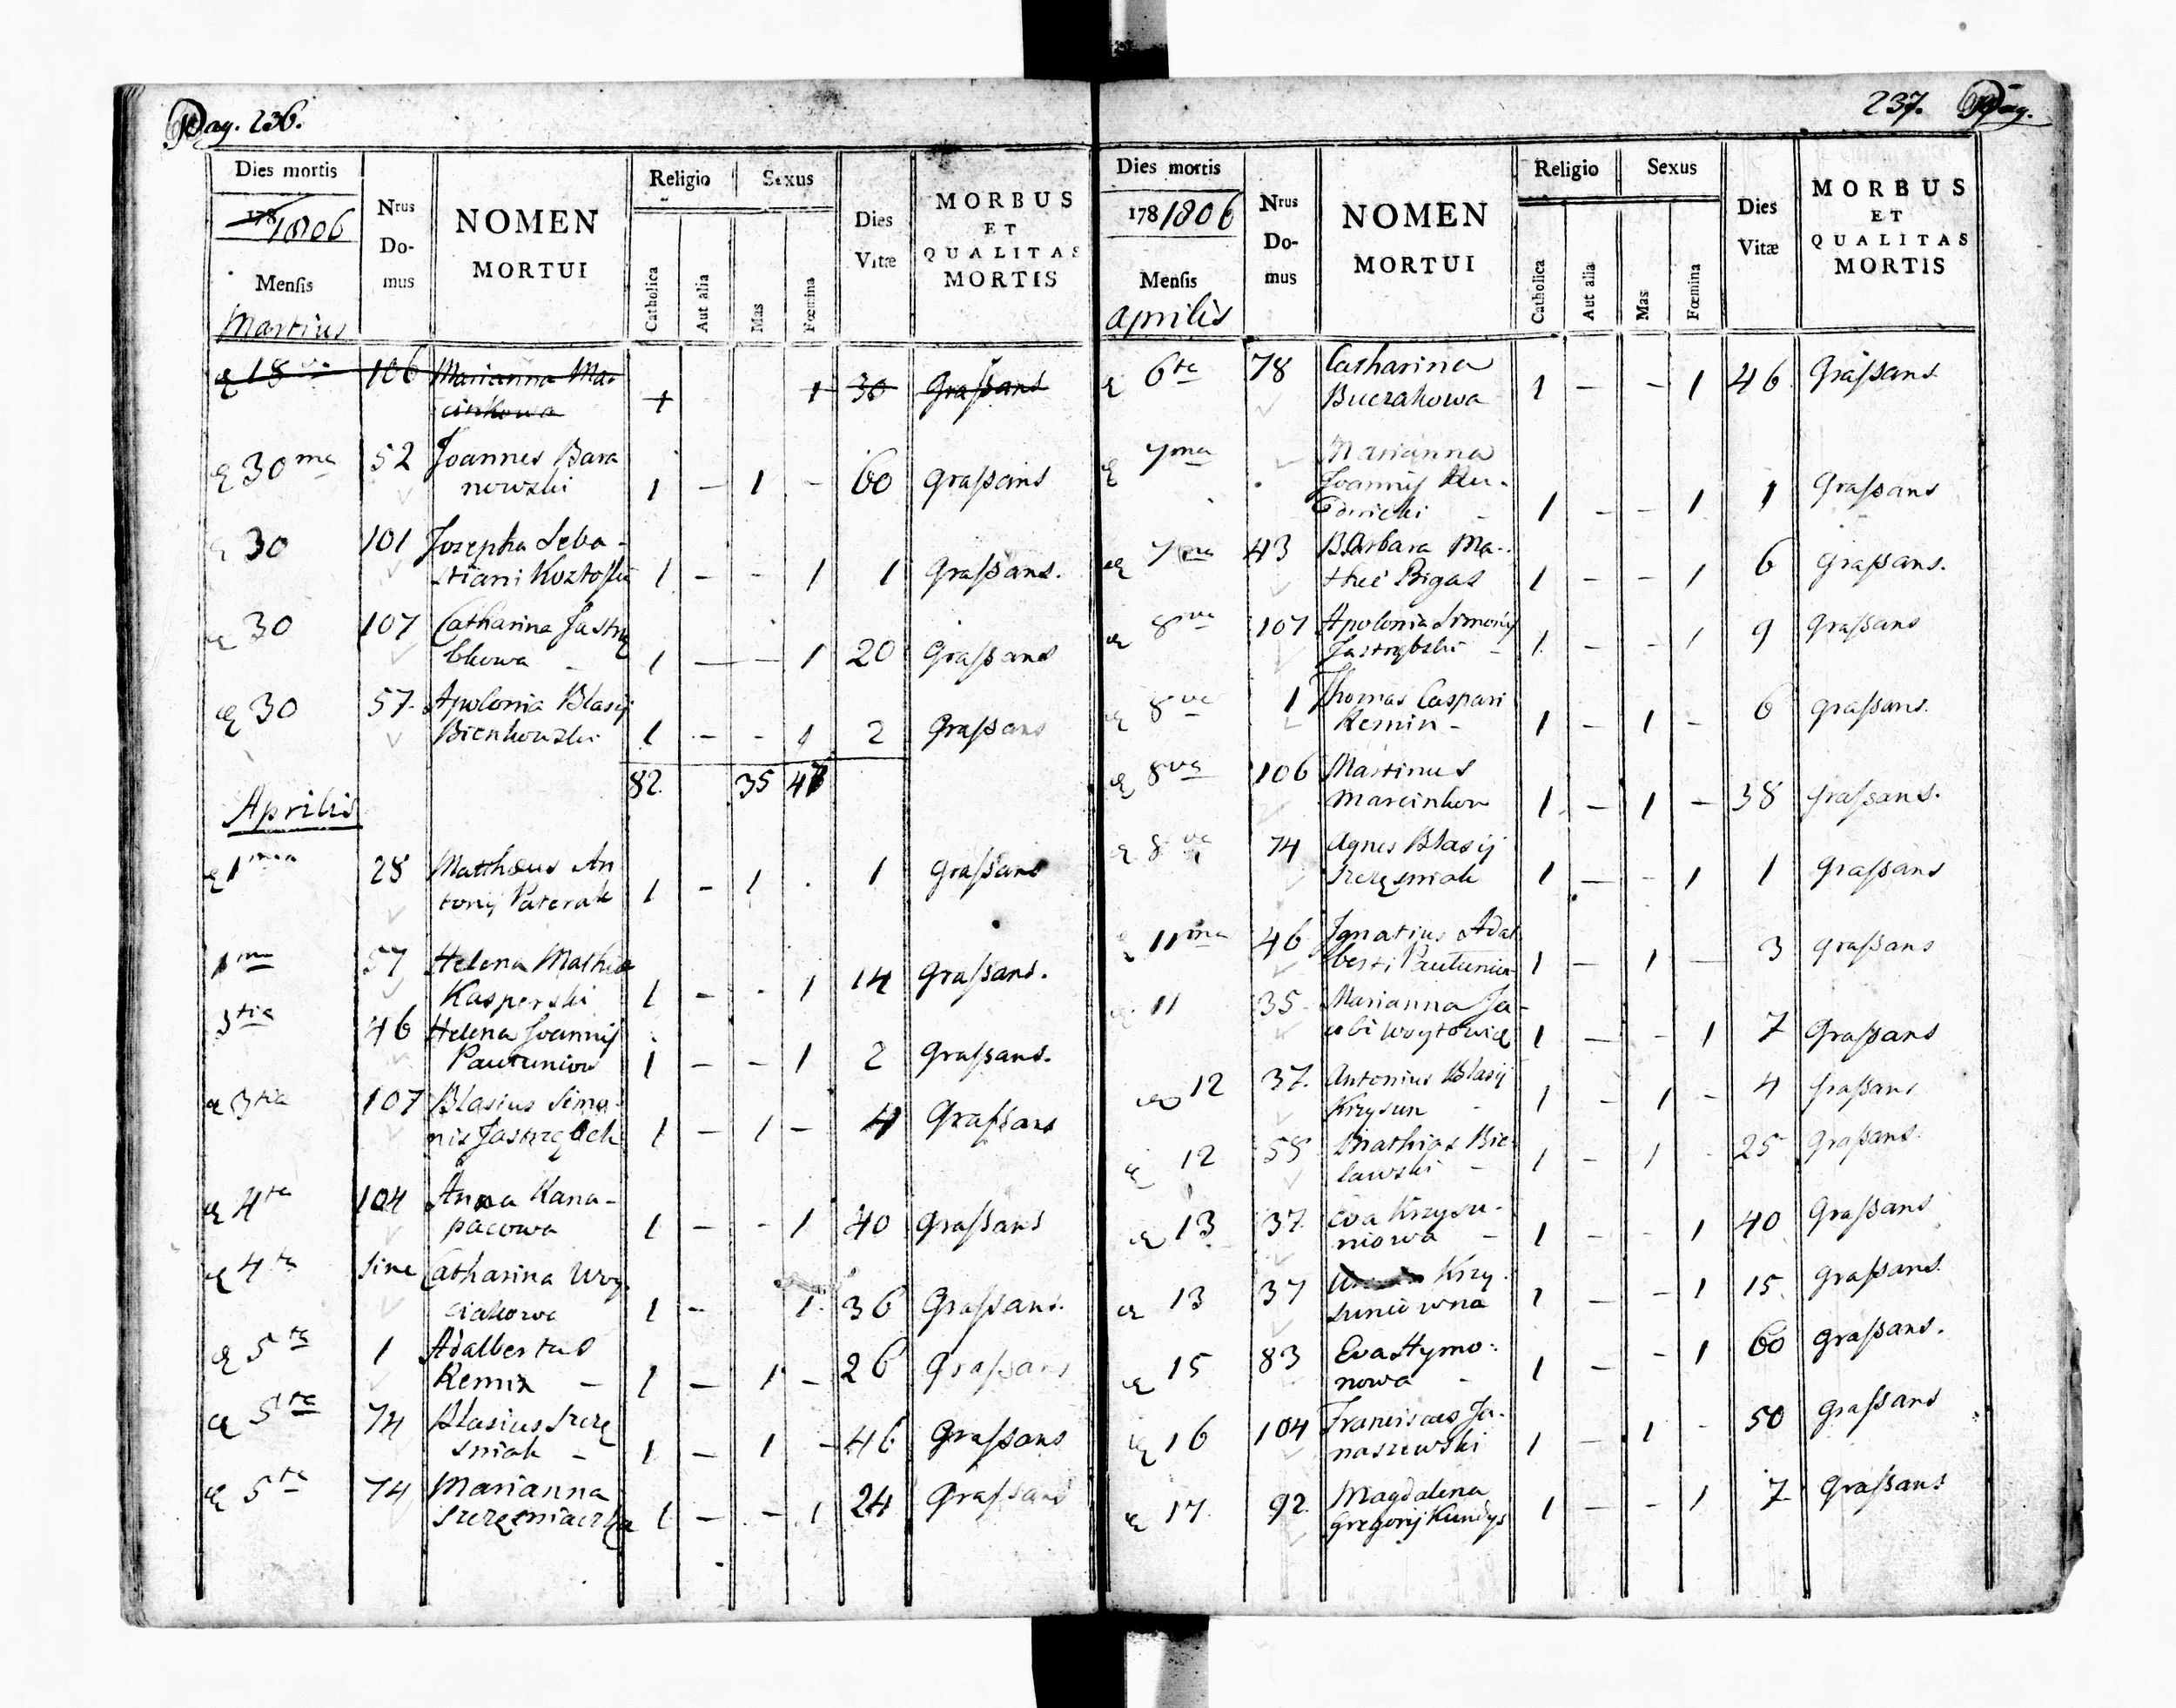 Pag. 236.
Dies mortis
1781806
Mensis
Martius
Nrus
Do-
mus
NOMEN
MORTUI
Religio
Catholica
Aut alia
Sexus
Mas
Fœmina
Dies
Vitæ
MORBUS
ET
QUALITAS
MORTIS
18va 106 Marianna Mar
cinkowa 1 1 30 Graſsans
30ma 52 Joannes Bara
nowski 1 – 1 – 60 graſsans
30 101 Josepha Seba-
stiani 1 – – 1 1 graſsans.
30 107 Catharina Jastrzę
bkowa – 1 – – 1 20 graſsans
30 57. Apolonia Blasij
Bienkowski 1 – – 1 2 graſsans
82. 35 47
Aprilis
1ma 28 Mattheus An
tonij Paterak 1 – 1 . 1 graſsans
1ma 57 Helena Mathia
Kasperski 1 – – 1 14 graſsans.
3tia 46 Helena Joannij
Pautuniow 1 – – 1 2 graſsans.
3tia 107 Blasius Simo-
nis 1 – 1 – 4 graſsans
4ta 104 Anna Kana-
pacowa 1 – – 1 40 graſsans
4ta Sine Catharina Woy
ciakowa 1 – 1. 36 graſsans.
5ta 1 Adalbertus
Remin – 1 – 1 – 26 graſsans
5ta 74 Blasius Szczę
sniak – 1 – 1 – 46 graſsans
5ta 74 Marianna
Szczęsniaczka 1 – – 1 24 graſsans
237. Pag.
Dies mortis
1781806
Mensis
aprilis
Nrus
Do-
mus
NOMEN
MORTUI
Religio
Catholica
Aut alia
Sexus
Mas
Fœmina
Dies
Vitæ
MORBUS
ET
QUALITAS
MORTIS
6ta 78 Catharina
Buczakowa 1 – – 1 46 graſsans
7ma Marianna
Joannij Ru-
dnicki – 1 – – 1 1 graſsans
7ma 43 Barbara Ma-
thei Bigas 1 – – 1 6 graſsans.
8va 107 Apolonia Simonis
Jastrzębski – 1. – – 1 9 graſsans
8va 1 Thomas Caspari
Remin – 1 – 1 – 6 graſsans.
8va 106 Martinus
Marcinkow 1 – 1 – 38 graſsans.
8va 74 Agnes Blasij
Szczęsniak 1 – – 1 1 graſsans
11ma 46 Ignatius Adal
berti 1 – 1 – 3 graſsans
11 35. Marianna Ja-
cobi 1 – – 1 7 graſsans
12 37. Antonius Blasij
Krzysun – 1 – 1 – 4 graſsans
12 58 Mathias Bie-
lawski – 1 – 1 25 graſsans.
13 37. Eva Krzysu-
niowa – 1 – – 1 40 graſsans
13 37 Krzy-
suniowna 1 – – 1 15. graſsans.
15 83 Eva Szymo-
nowa – 1 – – 1 60 graſsans.
16 104 Franciscus Ja-
naszewski 1 – 1 – 50 graſsans
17. 92. Magdalena
Gregorij Kundys 1 – – 1 7. graſsans